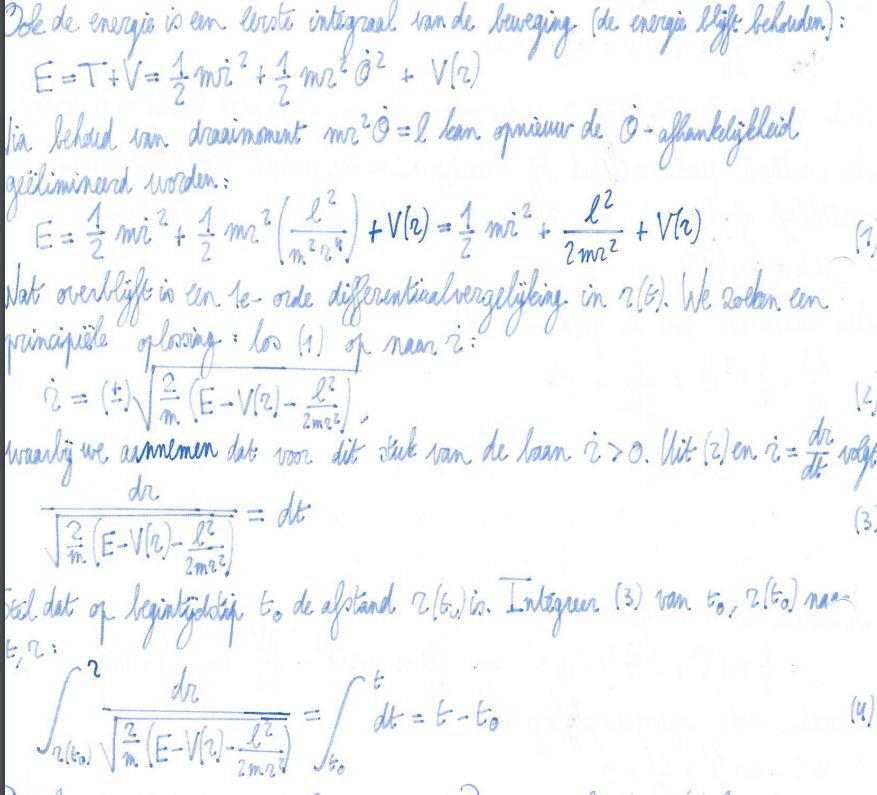 Ook de energie is een eerste integraal van de beweging (de energie blijft behouden):
E = T + V = 1/2 mṙ² + 1/2 mr² θ̇² + V(r)
Via behoud van draaimoment mr²θ̇ = l kan opnieuw de θ̇-afhankelijkheid
geëlimineerd worden:
E = 1/2 mṙ² + 1/2 mr² (l²/m²r⁴) + V(r) = 1/2 mṙ² + l²/2mr² + V(r) (1)
Wat overblijft is een 1e-orde differentiaalvergelijking in r(t). We zoeken een
principiële oplossing: los (1) op naar ṙ:
ṙ = (±) √(2/m (E - V(r) - l²/2mr²)), (2)
waarbij we aannemen dat voor dit stuk van de baan ṙ > 0. Uit (2) en ṙ = dr/dt volgt
dr / √(2/m (E - V(r) - l²/2mr²)) = dt (3)
Stel dat op begintijdstip t₀ de afstand r(t₀) is. Integreer (3) van t₀, r(t₀) naar
t, r:
∫_{r(t₀)}^{r} dr / √(2/m (E - V(r) - l²/2mr²)) = ∫_{t₀}^{t} dt = t - t₀ (4)